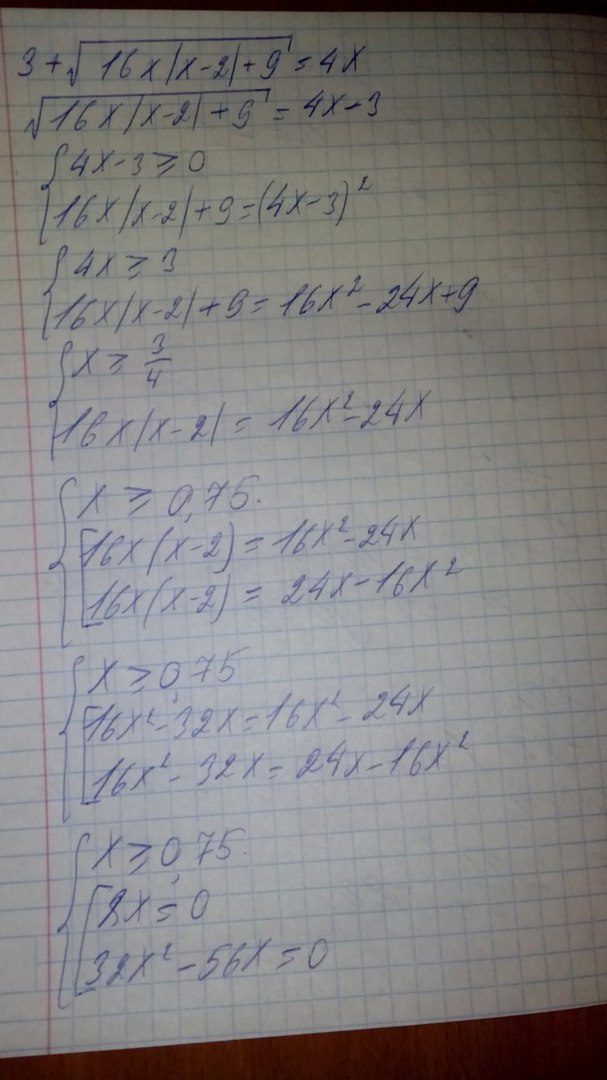 3+√(16x|x-2|+9) = 4x
√(16x|x-2|+9) = 4x-3
{ 4x-3 ≥ 0
16x|x-2|+9=(4x-3)²
{ 4x ≥ 3
16x|x-2|+9 = 16x²-24x+9
{ x ≥ 3/4
16x|x-2| = 16x²-24x
{ x ≥ 0,75.
[ 16x(x-2) = 16x²-24x
16x(x-2) = 24x-16x²
{ x ≥ 0,75
[ 16x²-32x=16x²-24x
16x²-32x = 24x-16x²
{ x ≥ 0,75.
[ 8x = 0
32x²-56x=0